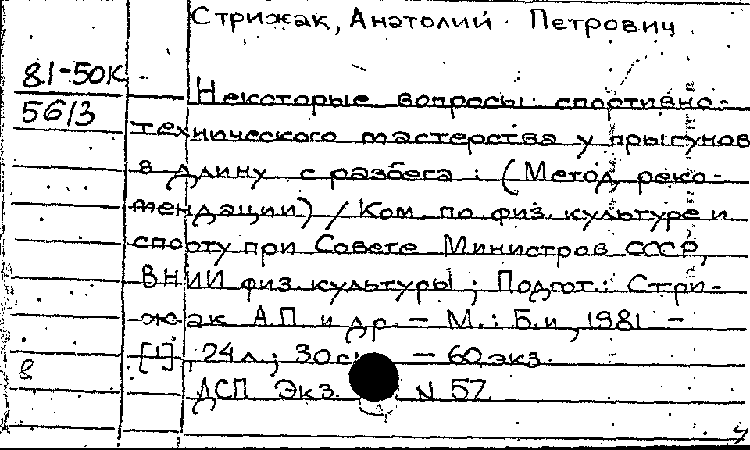 Стрижак, Анатолий Петрович
81-50К
5613
Некоторые вопросы спортивно-
технического мастерства у прыгунов
в длину с разбега : (Метод. реко-
мендации) / Ком. по физ. культуре и
спорту при Совете Министров СССР,
ВНИИ физ. культуры ; Подгот.: Стри-
жак А.П. и др. - М. : Б.и., 1981 -
[1], 24л.; 30см - 60 экз.
8
ДСП Экз. N 57